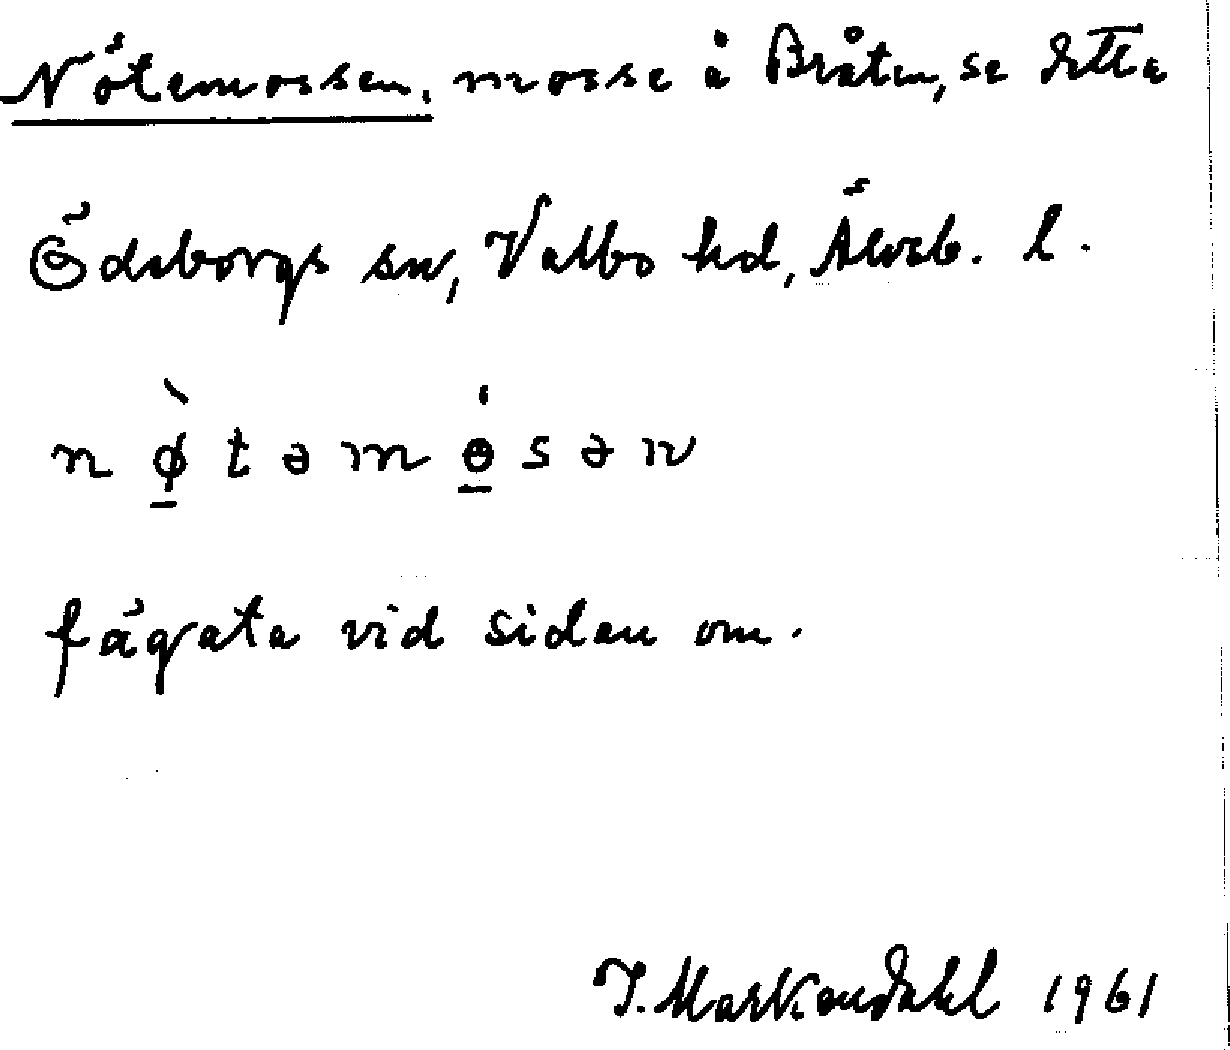 Nötemossen, mosse å Bråten, se detta
Ödeborgs sn, Valbo hd, Älvsb. l.
n ø̀ t ə m ɵ̇ s ə n
fägata vid sidan om.
T. Markendahl 1961